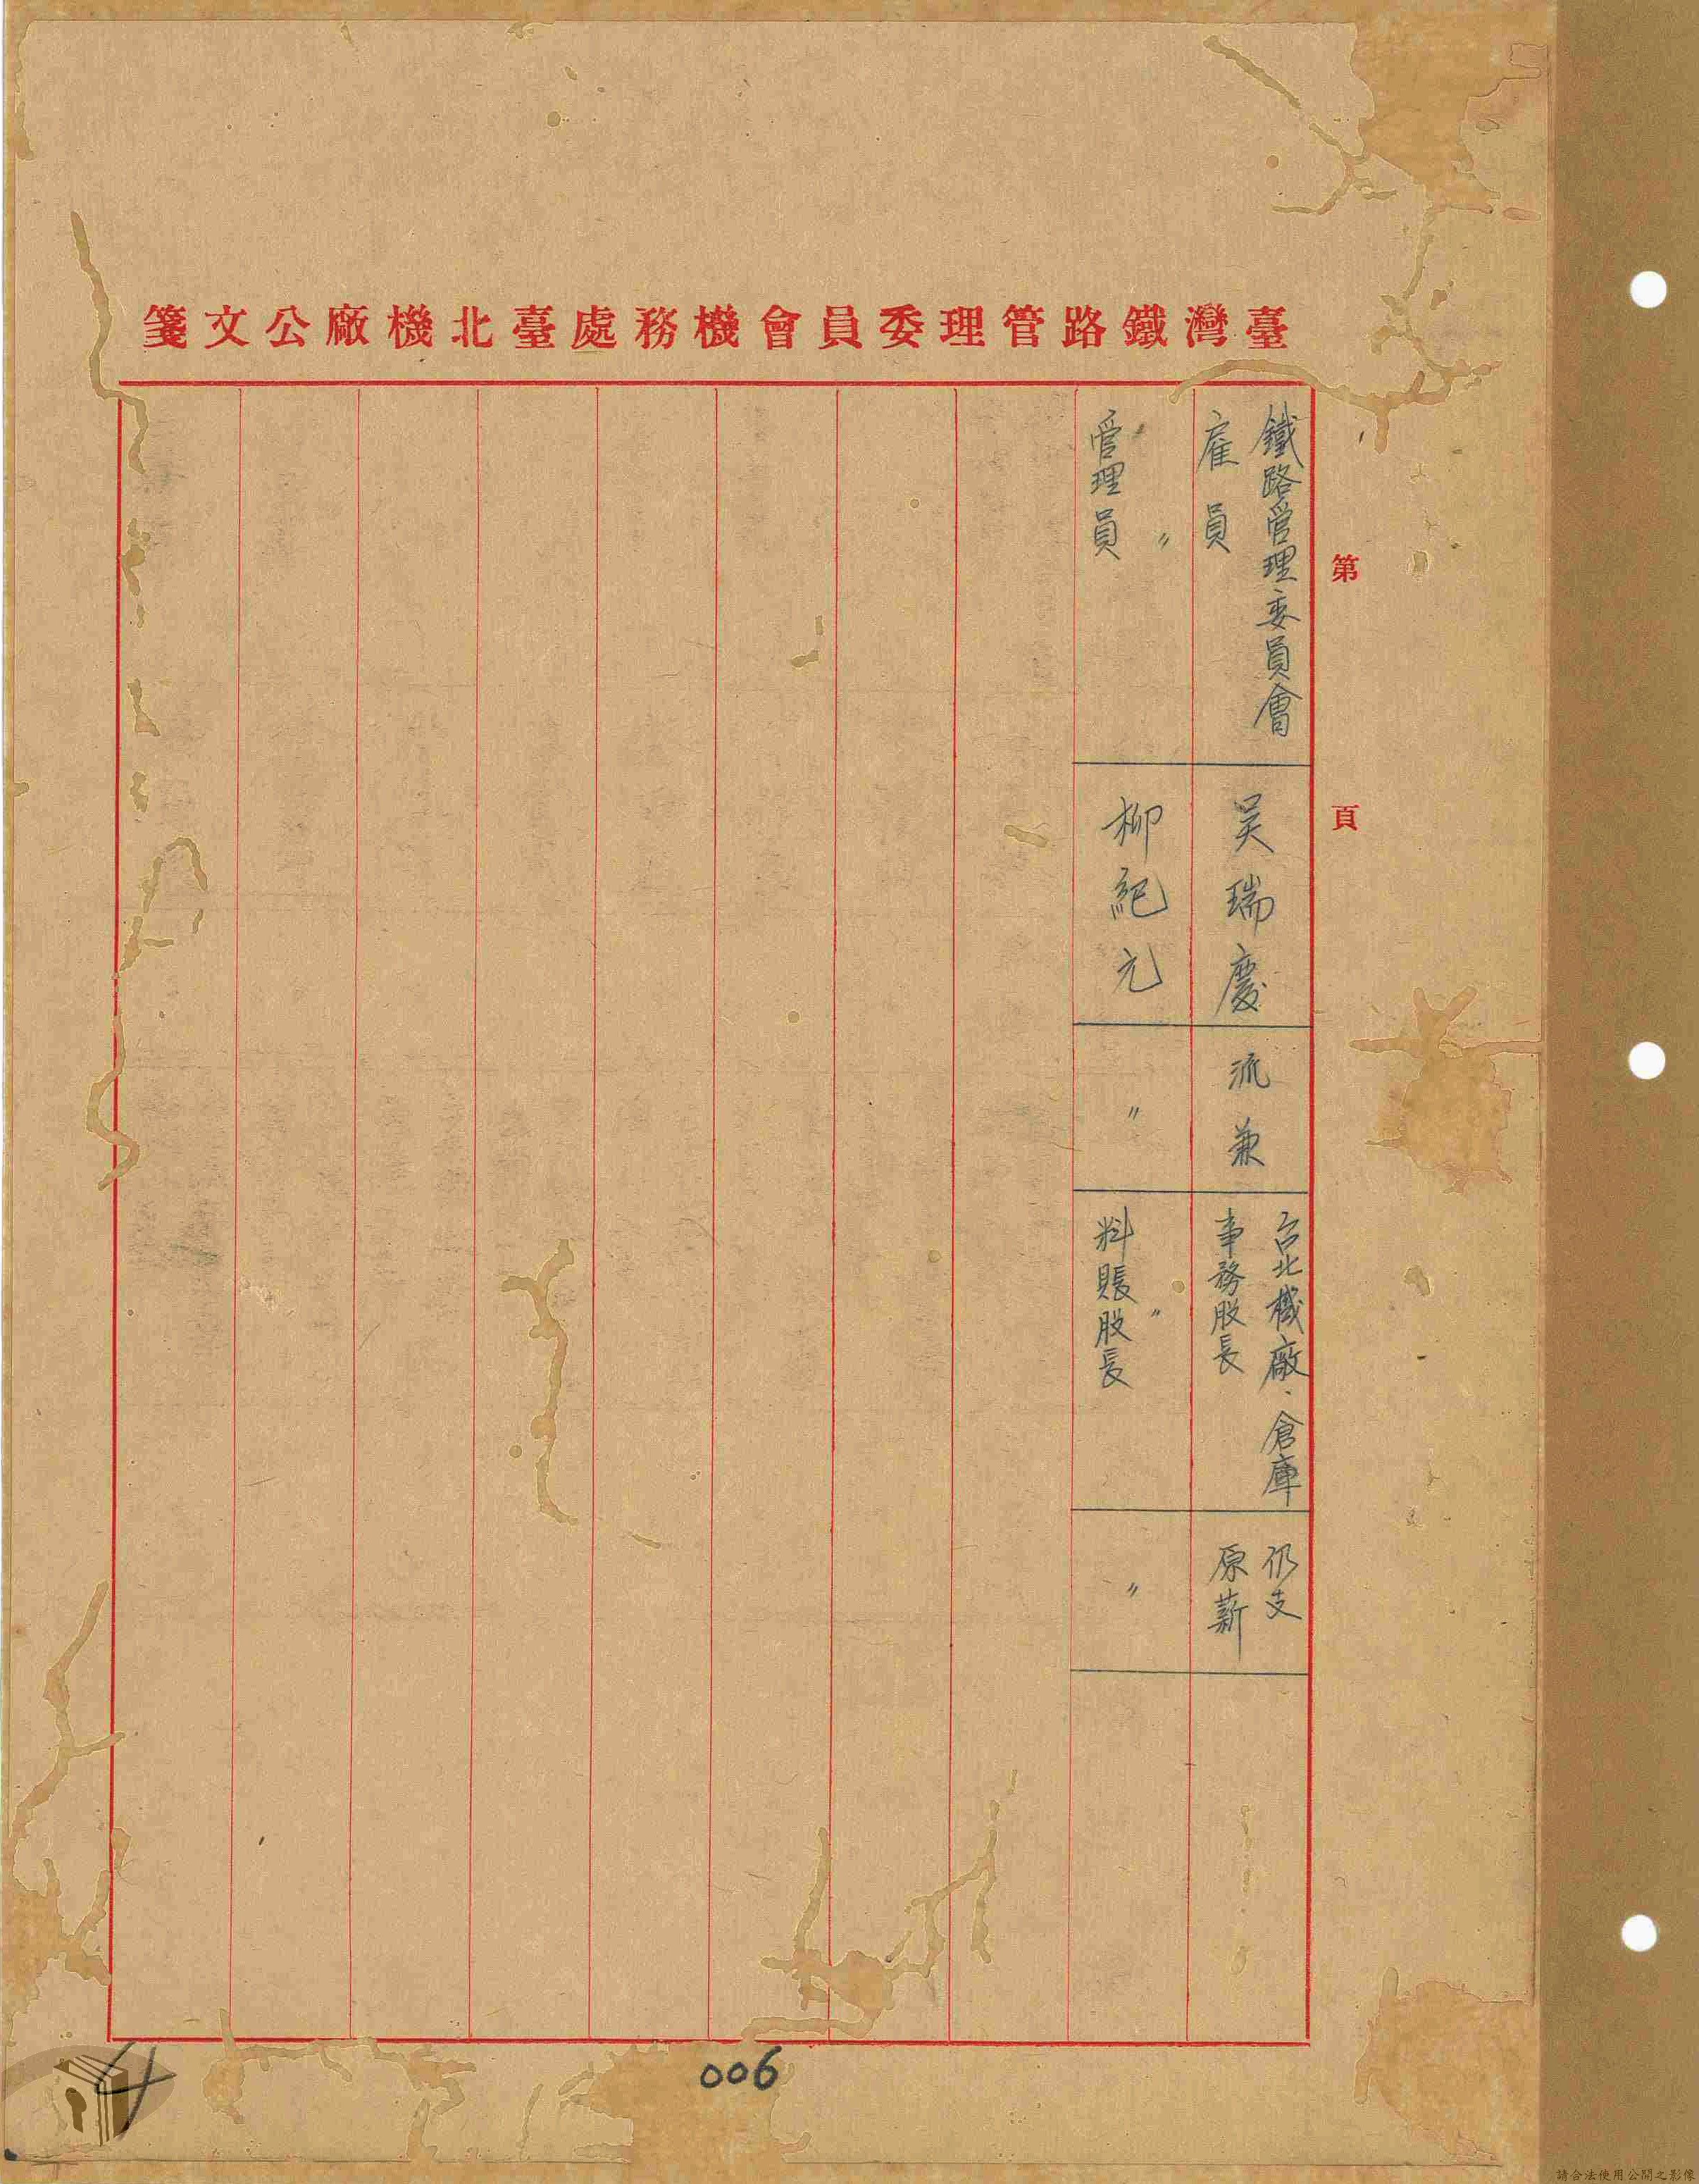 臺灣鐵路管理委員會機務處臺北機廠公文箋
第　頁
鐵路管理委員會
雇員
吳瑞慶
派兼
台北機廠．倉庫
事務股長
仍支
原薪
〃
管理員
柳紀元
〃
〃
料賬股長
〃
006
4
請合法使用公開之影像